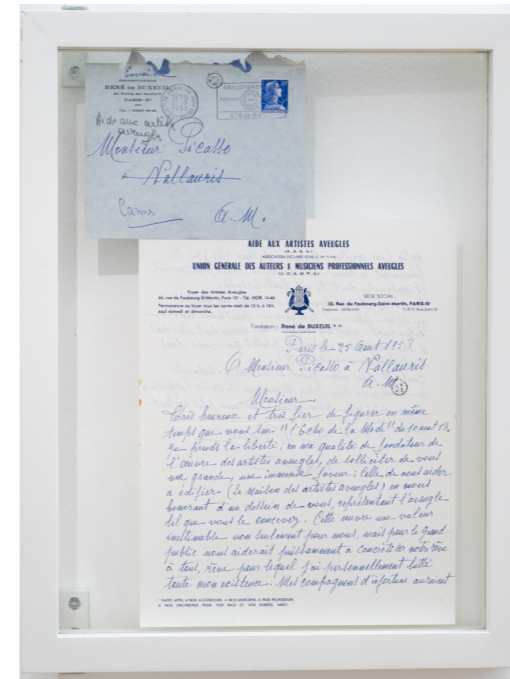 RENÉ DE BUXEUIL
PARIS-2ᵉ
Aide aux artistes
aveugles
Monsieur Picasso
a Vallauris
Cannes
A. M.
AIDE AUX ARTISTES AVEUGLES
(A. A. A.)
UNION GÉNÉRALE DES AUTEURS & MUSICIENS PROFESSIONNELS AVEUGLES
Foyer des Artistes Aveugles
44, rue du Faubourg St-Martin, Paris 10ᵉ - Tél. NOR. 14-48
Permanence au foyer tous les après-midi de 15 h. à 18 h.
sauf samedi et dimanche.
SIÈGE SOCIAL
Rue du Faubourg-Saint-Martin, PARIS-10ᵉ
Fondation : René de BUXEUIL
Paris le 25 aout 1958
A Monsieur Picasso à Vallauris
A. M.
Monsieur
Très heureux et très fier de figurer en même
temps que vous sur "l'Echo de la Mode" du 10 aout 58.
Je prends la liberté, en ma qualité de fondateur de
l'œuvre des artistes aveugles, de solliciter de vous
une grande, une immense faveur : Celle de nous aider
a édifier (La maison des artistes aveugles) en nous
honorant d'un dessin de vous, représentant l'aveugle
tel que vous le concevez. Cette œuvre une valeur
inestimable non seulement pour nous, mais pour le grand
public nous aiderait puissamment a concrétiser notre rêve
à tous, rêve pour lequel j'ai personnellement lutté
toute mon existence. Mes compagnons d'infortune auraient